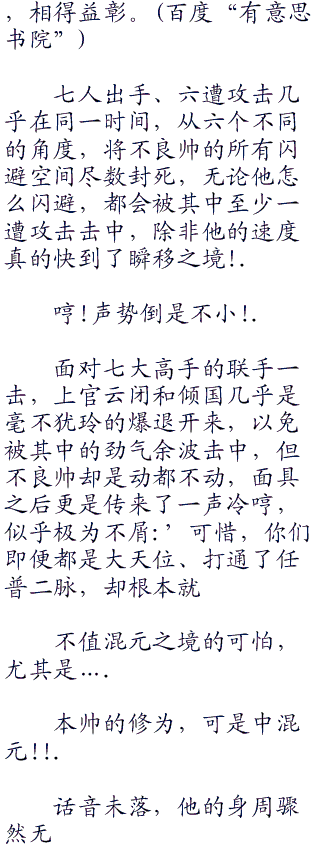 ，相得益彰。(百度“有意思
书院”)
七人出手、六遭攻击几
乎在同一时间，从六个不同
的角度，将不良帅的所有闪
避空间尽数封死，无论他怎
么闪避，都会被其中至少一
遭攻击击中，除非他的速度
真的快到了瞬移之境!.
哼!声势倒是不小!.
面对七大高手的联手一
击，上官云闭和倾国几乎是
毫不犹玲的爆退开来，以免
被其中的劲气余波击中，但
不良帅却是动都不动，面具
之后更是传来了一声冷哼，
似乎极为不屑:’可惜，你们
即便都是大天位、打通了任
普二脉，却根本就
不值混元之境的可怕，
尤其是….
本帅的修为，可是中混
元!!.
话音未落，他的身周骤
然无